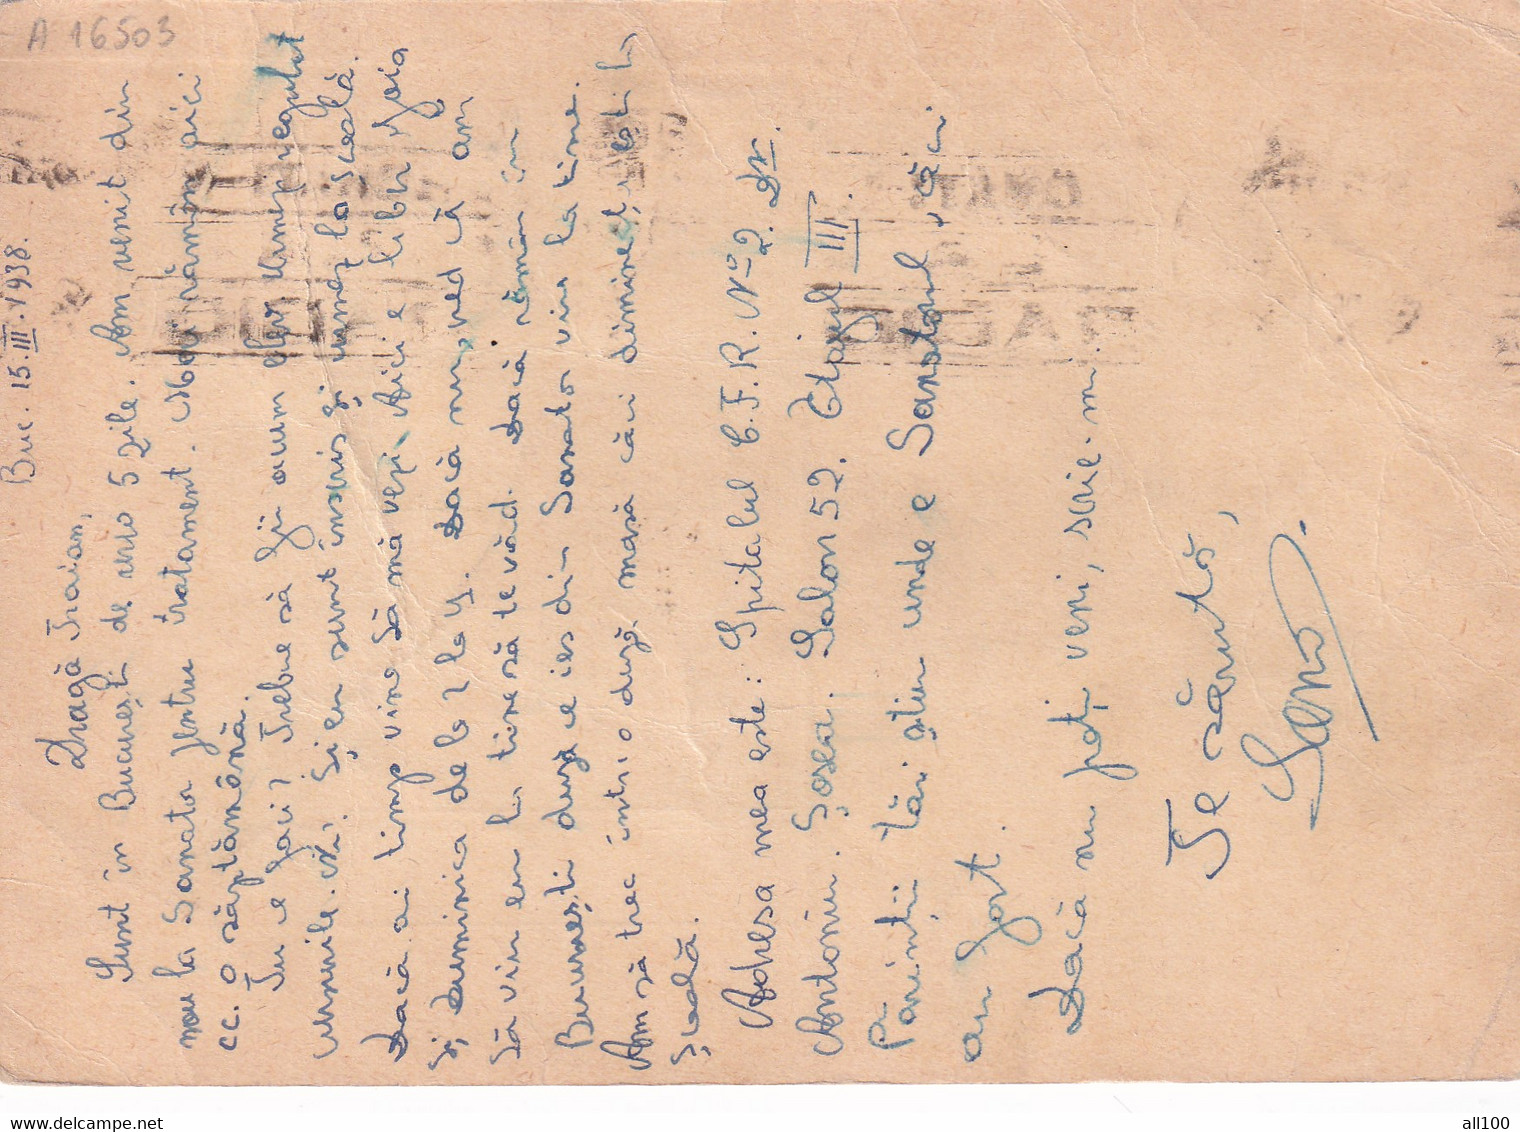 A 16503
Buc. 15.III.1938.
Dragă Traian,
Sunt în București de vreo 5 zile. Am venit din
nou la Sanator pentru tratament. Mai rămân aici
cc. o săptămână.
Tu ce faci? Trebue să fii acum elev regulat
Și eu sunt înscris și urmez la școală.
Dacă ai timp vine să mă vezi. Aici e liber Joia
și Duminica dela 2 la 4. Dacă nu, ved că am
să vin eu la tine să te văd. Dacă rămân în
București după ce ies din Sanator vin la tine.
Am să trec într'o după masă căci dimineața ești la
școală.
Adresa mea este: Spitalul C.F.R. No 2. Dr.
Antoniu. Șosea. Salon 52. Etajul III.
Părinții tăi știu unde e Sanatorul, căci
au fost.
Dacă nu poți veni, scrie-mi.
Te sărută,
all100